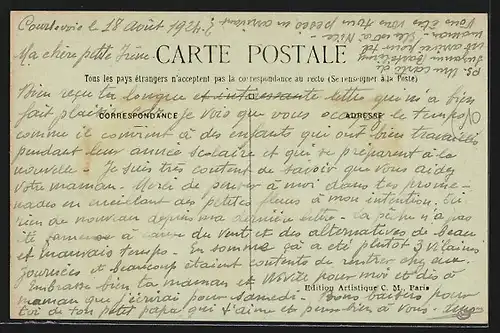 Courbevoie le 18 août 1924.
Ma chère petite Irène
CARTE POSTALE
Tous les pays étrangers n'acceptent pas la correspondance au recto (Se renseigner à la Poste)
Bien reçu ta longue et intéressante lettre qui m'a bien
CORRESPONDANCE
ADRESSE
fait plaisir. Je vois que vous occupez le temps
comme il convient à des enfants qui ont bien travaillés
pendant leur année scolaire et qui se préparent à la
nouvelle. Je suis très content de savoir que vous aidez
votre maman. Merci de penser à moi dans tes prome-
nades en cueillant des petites fleurs à mon intention.
rien de nouveau depuis ma dernière lettre. La pêche n'a pas
été fameuse à cause du vent et des alternatives de beau
et mauvais temps. En somme ça a été plutôt 3 vilaines
journées et beaucoup étaient contents de rentrer chez eux.
Embrasse bien ta maman et pour moi et dis à
Edition Artistique C. M., Paris
maman que j'écrirai pour samedi. Bons baisers pour
toi de ton petit papa qui t'aime et pense bien à vous.
PS. Une carte de
Suzanne
est arrivée pour toi
maman
Vous êtes vous trop pesée en arrivant ?